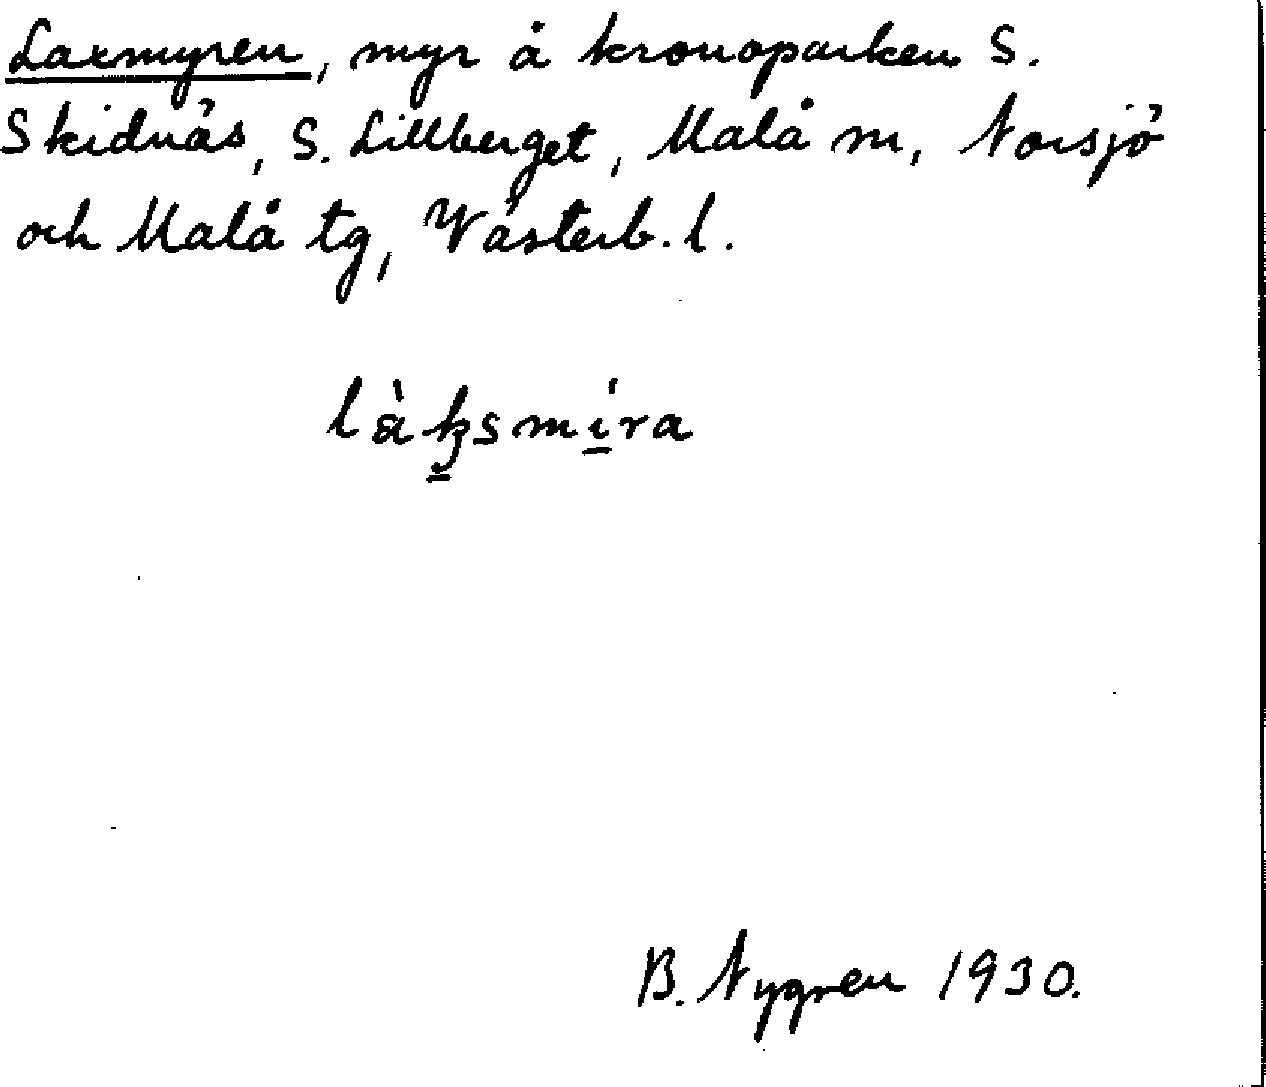 Laxmyren, myr å kronoparken S.
Skidnäs, S. Lillberget, Malå sn, Norsjö
och Malå tg, Västerb. l.
làk̠smí̠ra
B. Nygren 1930.